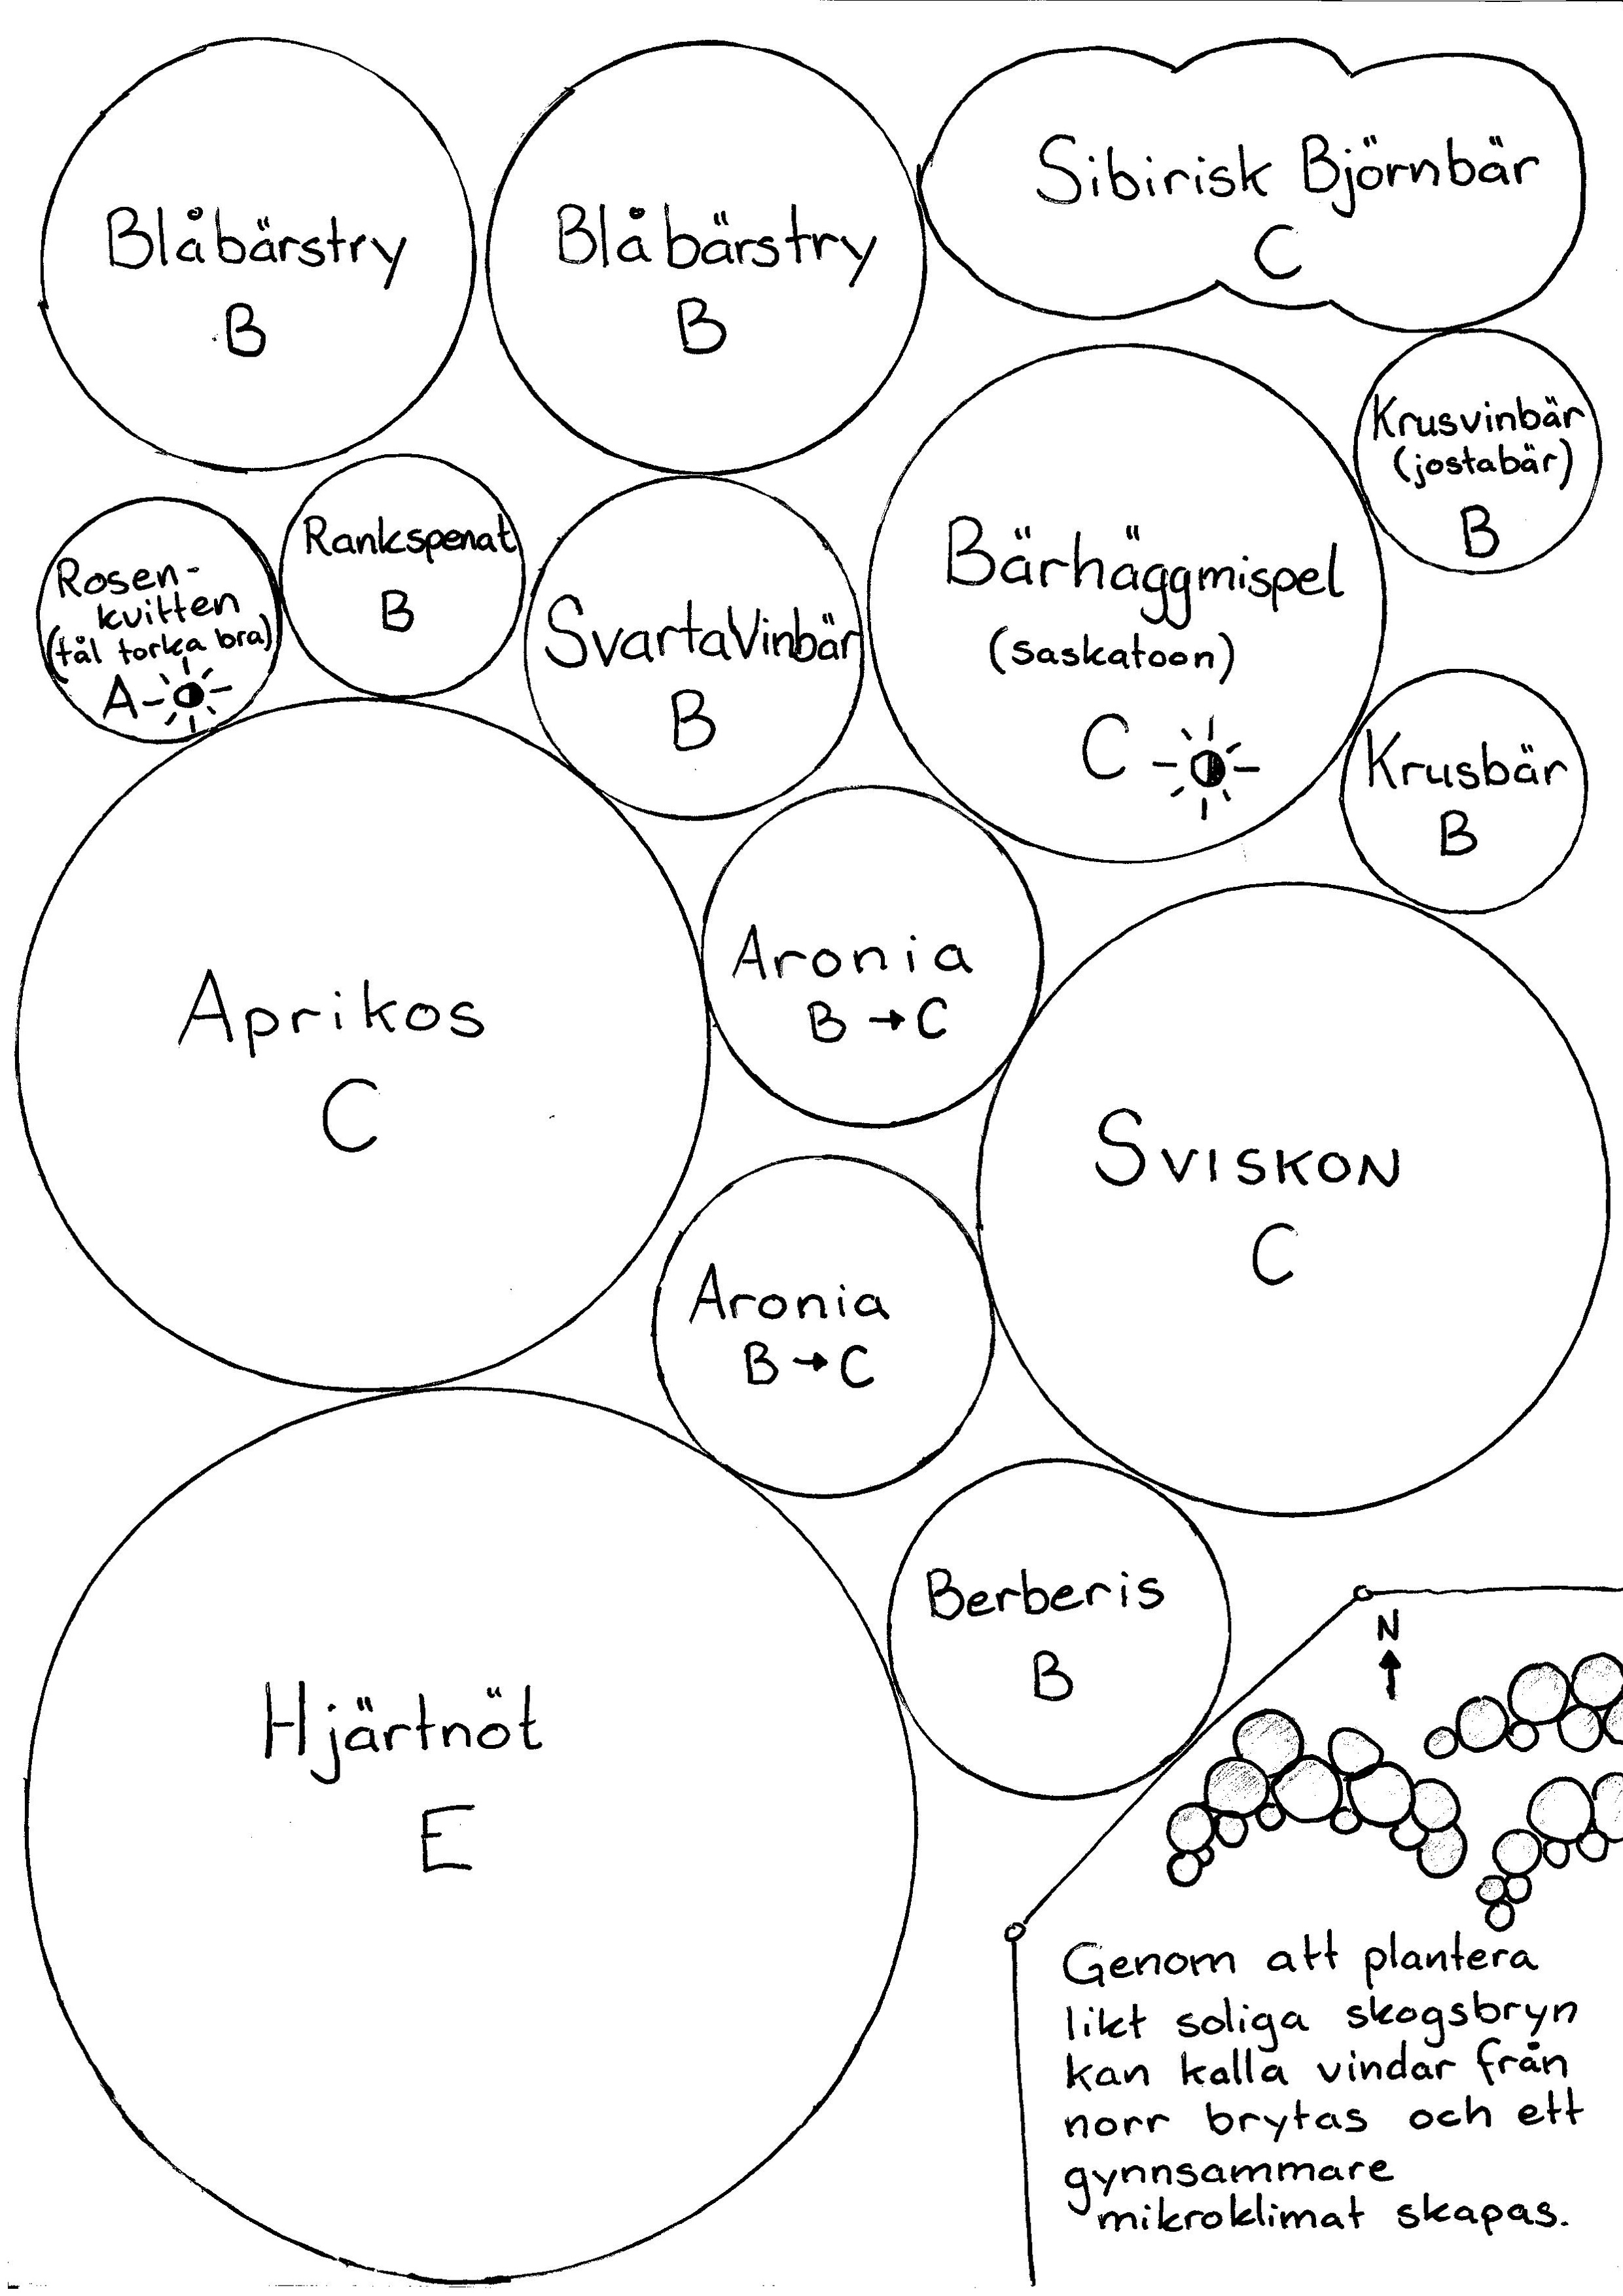 Blåbärstry
B
Blåbärstry
B
Sibirisk Björnbär
C
Krusvinbär
(jostabär)
B
Rosen-
kvitten
(tål torka bra)
A
Rankspenat
B
Svarta Vinbär
B
Bärhäggmispel
(saskatoon)
C
Krusbär
B
Aprikos
C
Aronia
B → C
SVISKON
C
Aronia
B → C
Hjärtnöt
E
Berberis
B
N
Genom att plantera
likt soliga skogsbryn
kan kalla vindar från
norr brytas och ett
gynnsammare
mikroklimat skapas.